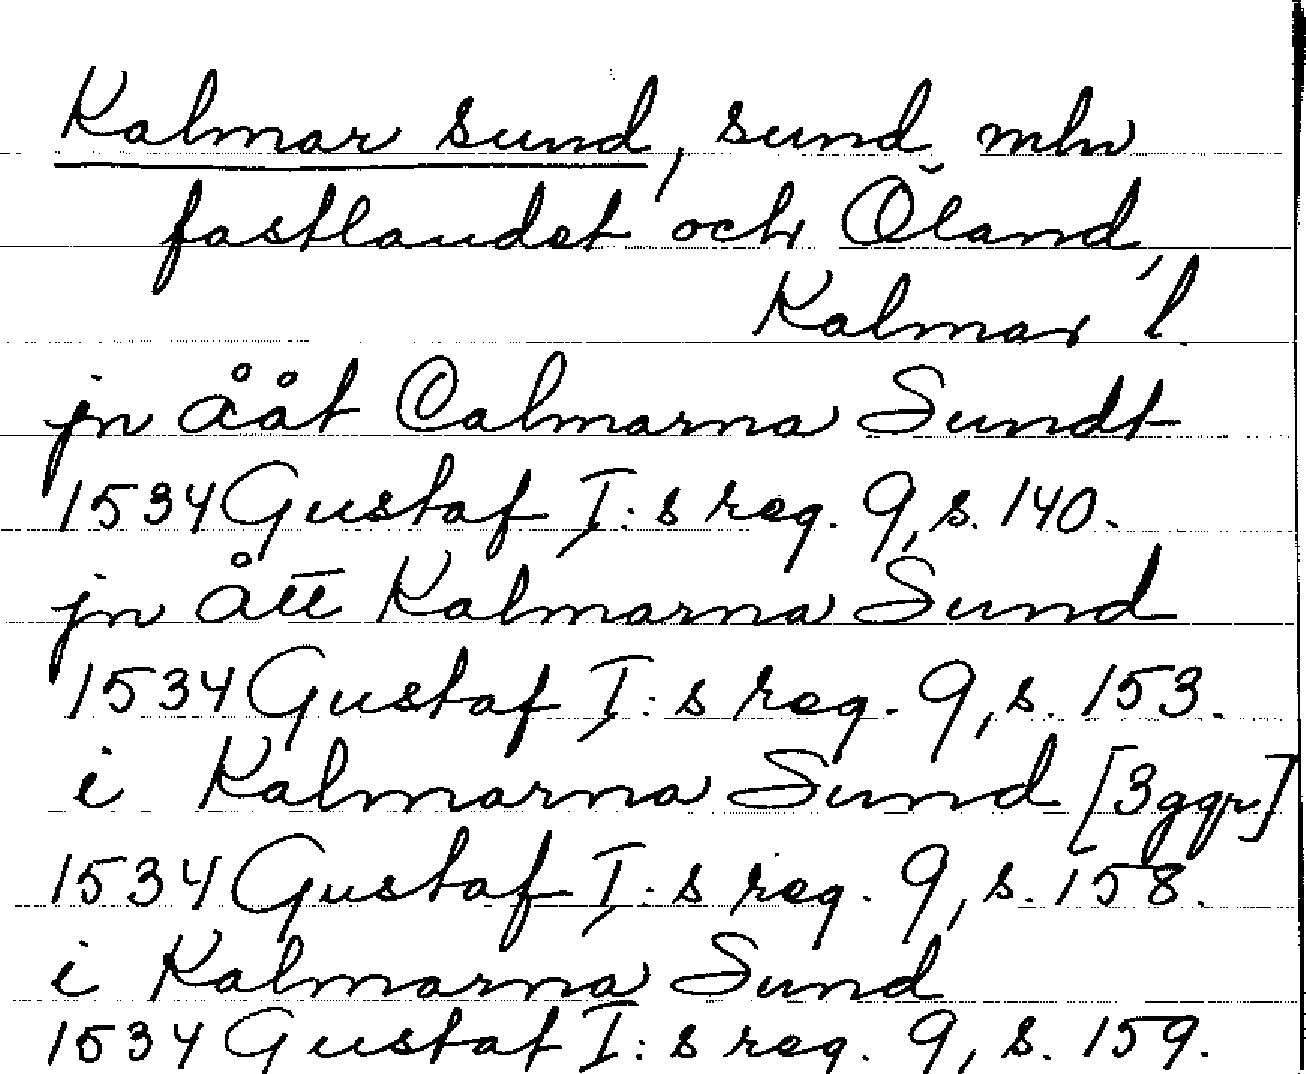 Kalmar sund, sund mln
fastlandet och Öland,
Kalmar l.
jn ååt Calmarna Sundt
1534 Gustaf I:s reg. 9, s. 140.
jn ått Kalmarna Sund
1534 Gustaf I:s reg. 9, s. 153.
i Kalmarna Sund [3 ggr]
1534 Gustaf I:s reg. 9, s. 158.
i Kalmarna Sund
1534 Gustaf I:s reg. 9, s. 159.